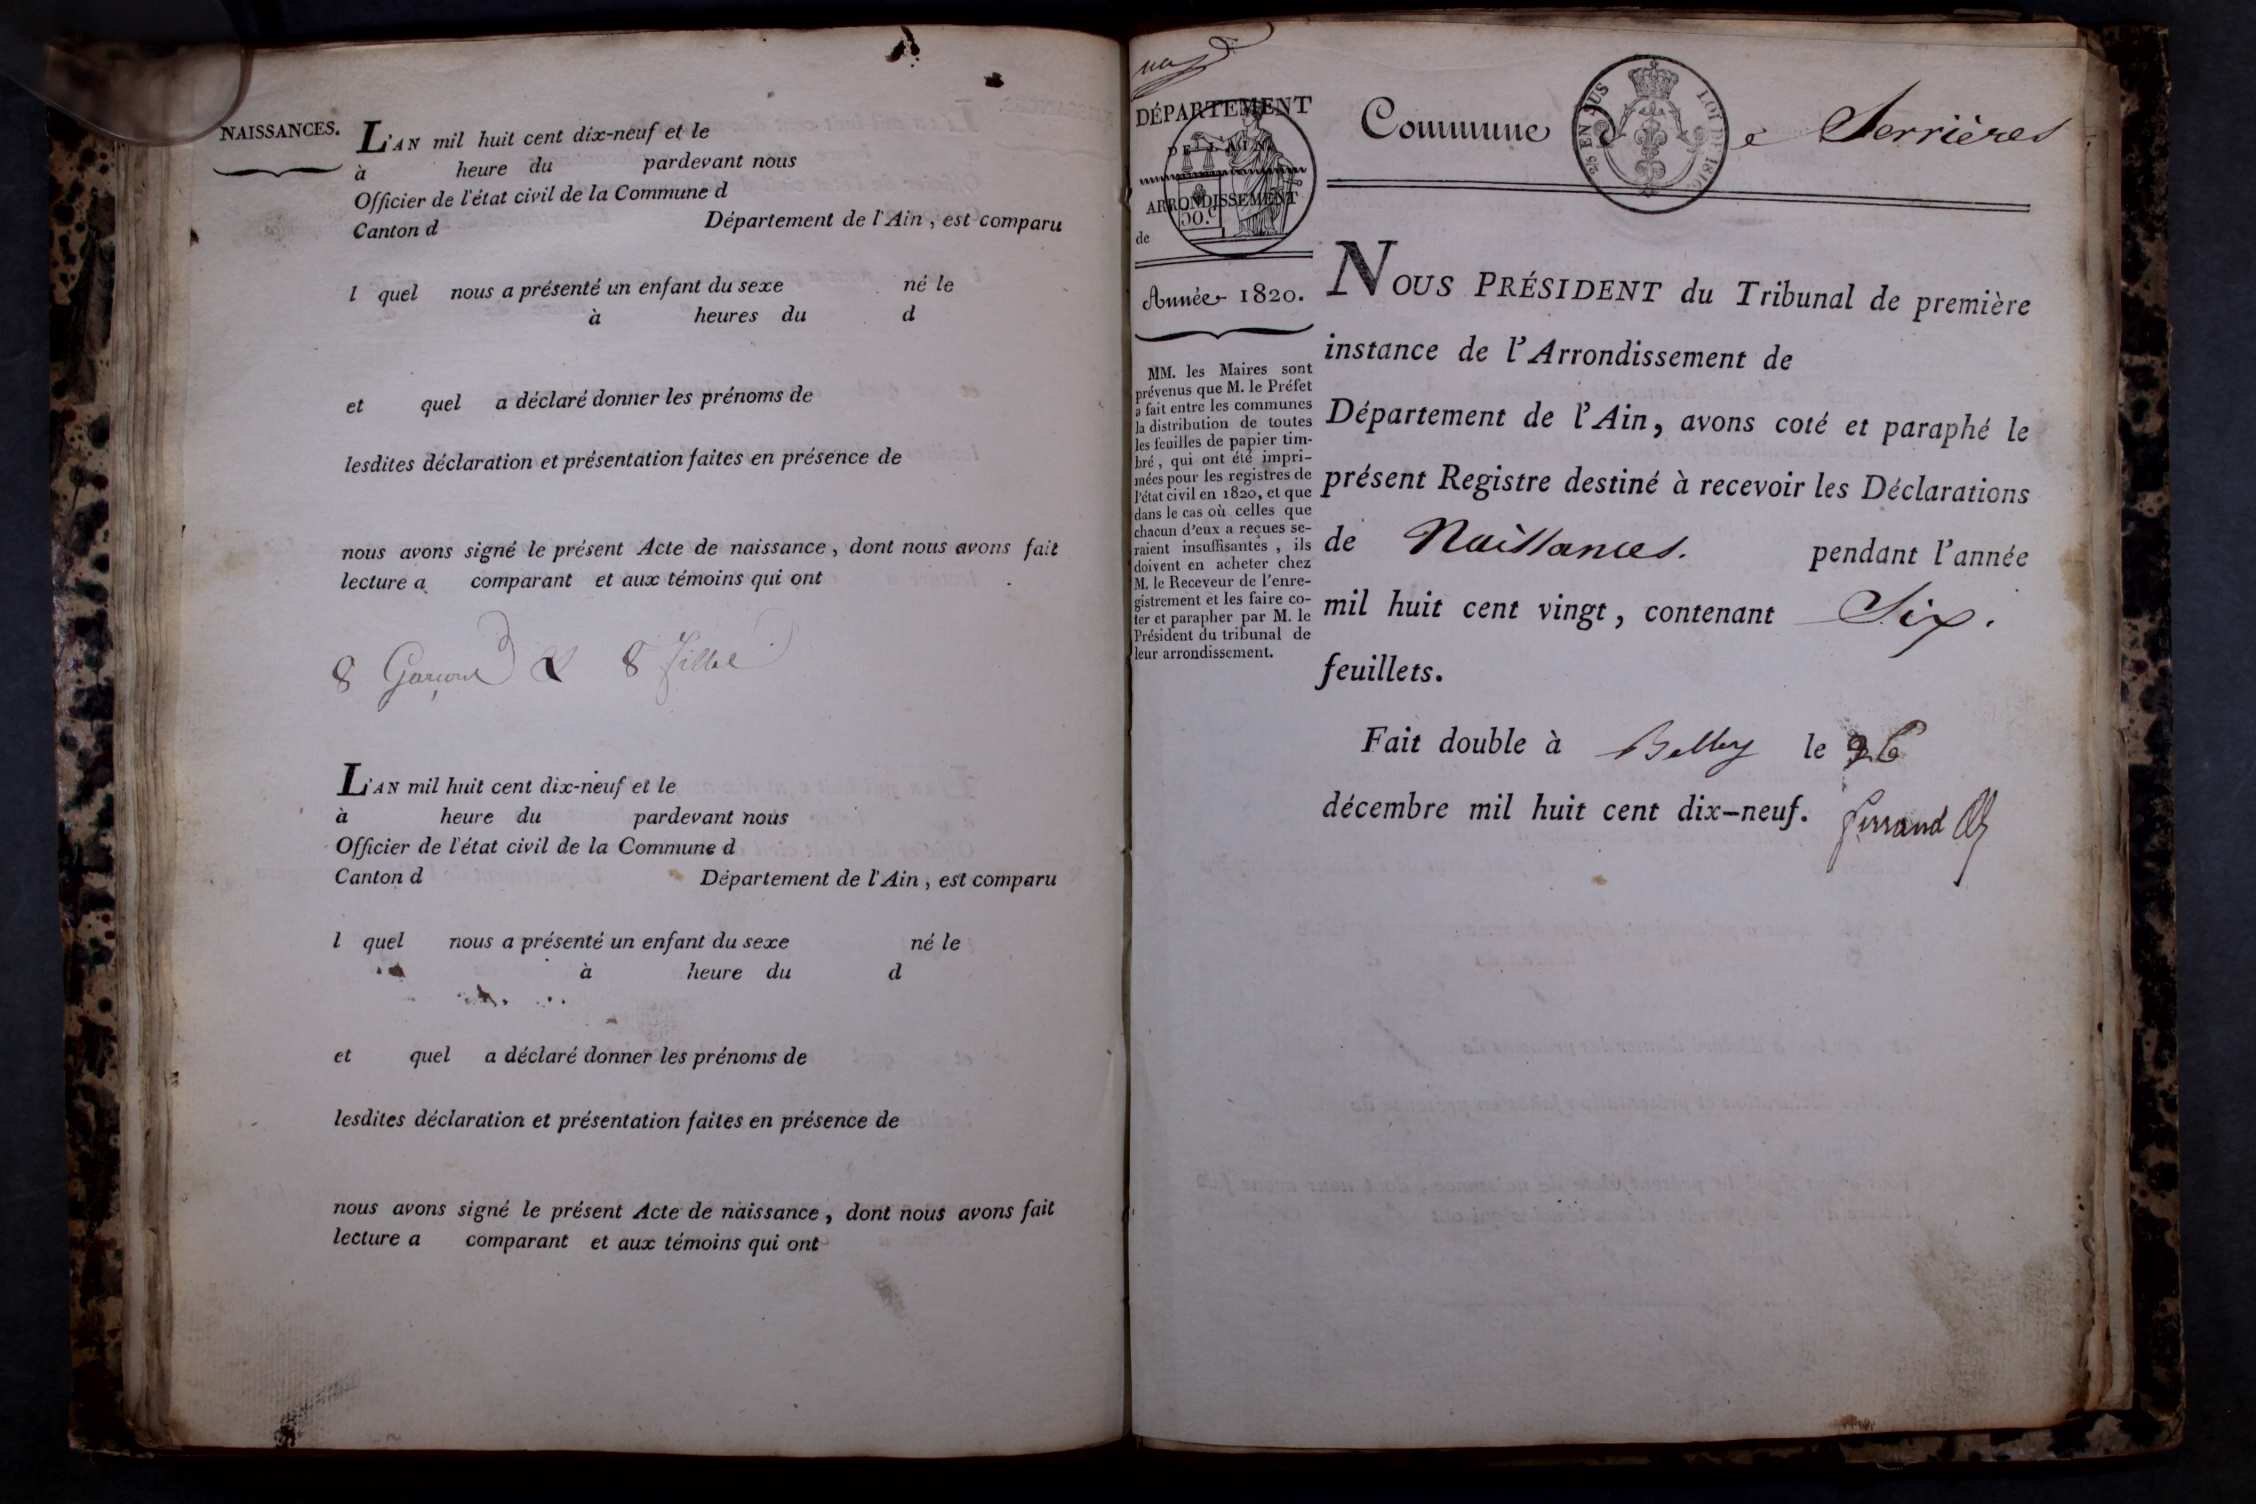 NAISSANCES.
L'AN mil huit cent dix-neuf et le
à heure du pardevant nous
Officier de l'état civil de la Commune d
Canton d Département de l'Ain, est comparu
l quel nous a présenté un enfant du sexe né le
à heures du d
et quel a déclaré donner les prénoms de
lesdites déclaration et présentation faites en présence de
nous avons signé le présent Acte de naissance, dont nous avons fait
lecture a comparant et aux témoins qui ont
8 Garçons & 8 filles
L'AN mil huit cent dix-neuf et le
à heure du pardevant nous
Officier de l'état civil de la Commune d
Canton d Département de l'Ain, est comparu
l quel nous a présenté un enfant du sexe né le
à heure du d
et quel a déclaré donner les prénoms de
lesdites déclaration et présentation faites en présence de
nous avons signé le présent Acte de naissance, dont nous avons fait
lecture a comparant et aux témoins qui ont
DÉPARTEMENT
DE L'AIN.
ARRONDISSEMENT
50.c
de
Année 1820.
MM. les Maires sont
prévenus que M. le Préfet
a fait entre les communes
la distribution de toutes
les feuilles de papier tim-
bré, qui ont été impri-
mées pour les registres de
l'état civil en 1820, et que
dans le cas où celles que
chacun d'eux a reçues se-
raient insuffisantes, ils
doivent en acheter chez
M. le Receveur de l'enre-
gistrement et les faire co-
ter et parapher par M. le
Président du tribunal de
leur arrondissement.
Commune de Serrières
EN SUS
LOI DE 1816
NOUS PRÉSIDENT du Tribunal de première
instance de l'Arrondissement de
Département de l'Ain, avons coté et paraphé le
présent Registre destiné à recevoir les Déclarations
de Naissances. pendant l'année
mil huit cent vingt, contenant Six.
feuillets.
Fait double à Belley le 26
décembre mil huit cent dix-neuf.
ferrand